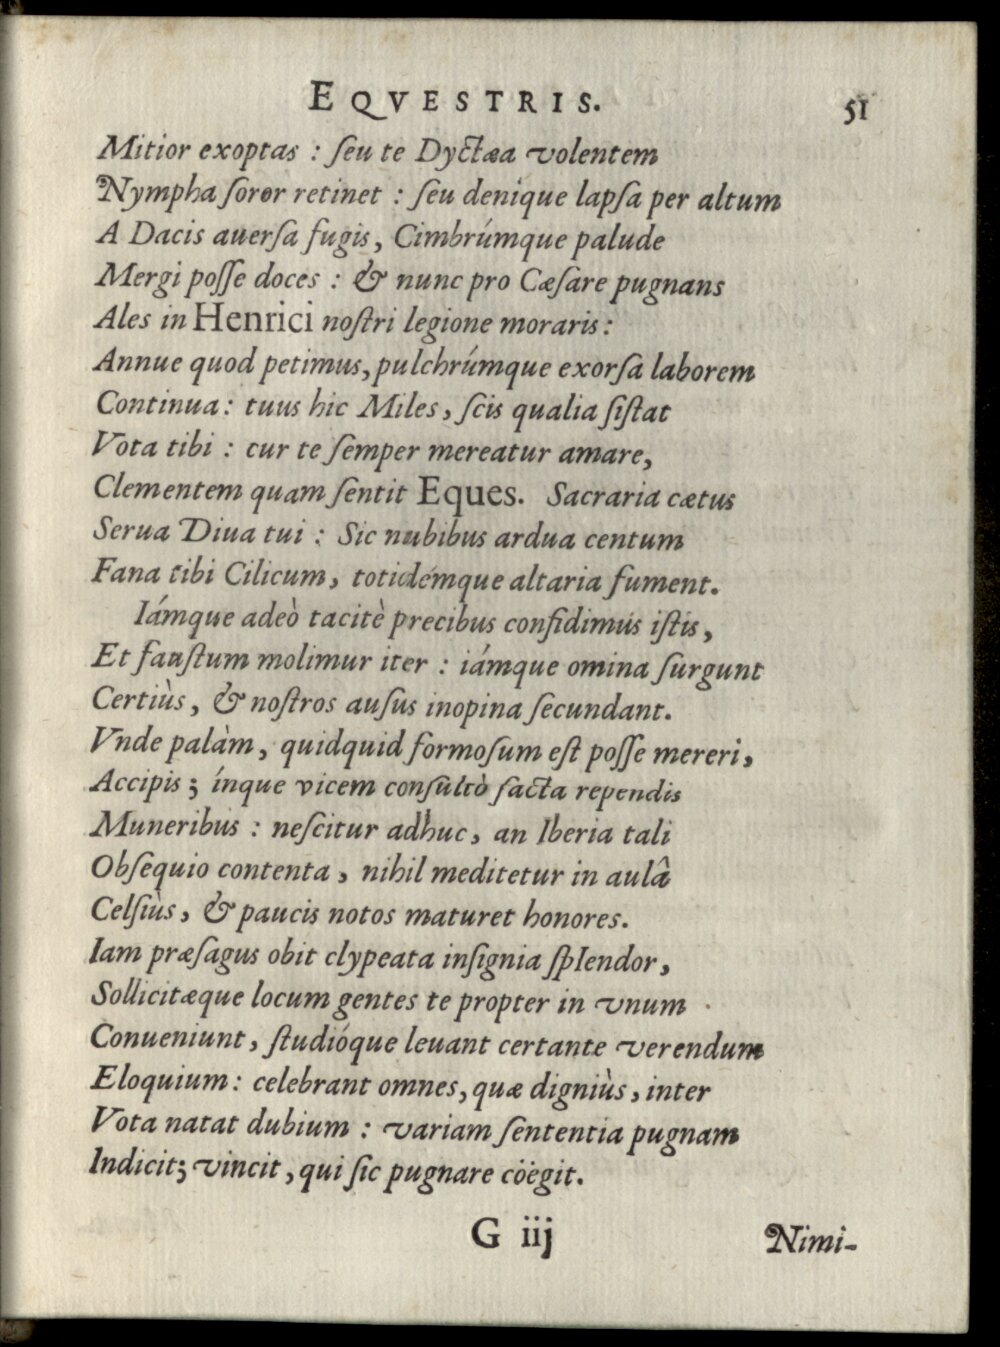 EQVESTRIS. 51
Mitior exoptas : ſeu te Dyctæa volentem
Nympha ſoror retinet : ſeu denique lapſa per altum
A Dacis auerſa fugis, Cimbrúmque palude
Mergi poſſe doces : & nunc pro Cæſare pugnans
Ales in Henrici noſtri legione moraris :
Annue quod petimus, pulchrúmque exorſa laborem
Continua : tuus hic Miles, ſcis qualia ſiſtat
Vota tibi : cur te ſemper mereatur amare,
Clementem quam ſentit Eques. Sacraria cætus
Serua Diua tui : Sic nubibus ardua centum
Fana tibi Cilicum, totidémque altaria fument.
Iámque adeò tacitè precibus confidimus iſtis,
Et fauſtum molimur iter : iámque omina ſurgunt
Certiùs, & noſtros auſus inopina ſecundant.
Vnde palàm, quidquid formoſum eſt poſſe mereri,
Accipis ; ínque vicem conſultò facta rependis
Muneribus : neſcitur adhuc, an Iberia tali
Obſequio contenta, nihil meditetur in aulâ
Celſiùs, & paucis notos maturet honores.
Iam præſagus obit clypeata inſignia ſplendor,
Sollicitæque locum gentes te propter in vnum
Conueniunt, ſtudióque leuant certante verendum
Eloquium : celebrant omnes, quæ digniùs, inter
Vota natat dubium : variam ſententia pugnam
Indicit; vincit, qui ſic pugnare cöegit.
G iij Nimi-